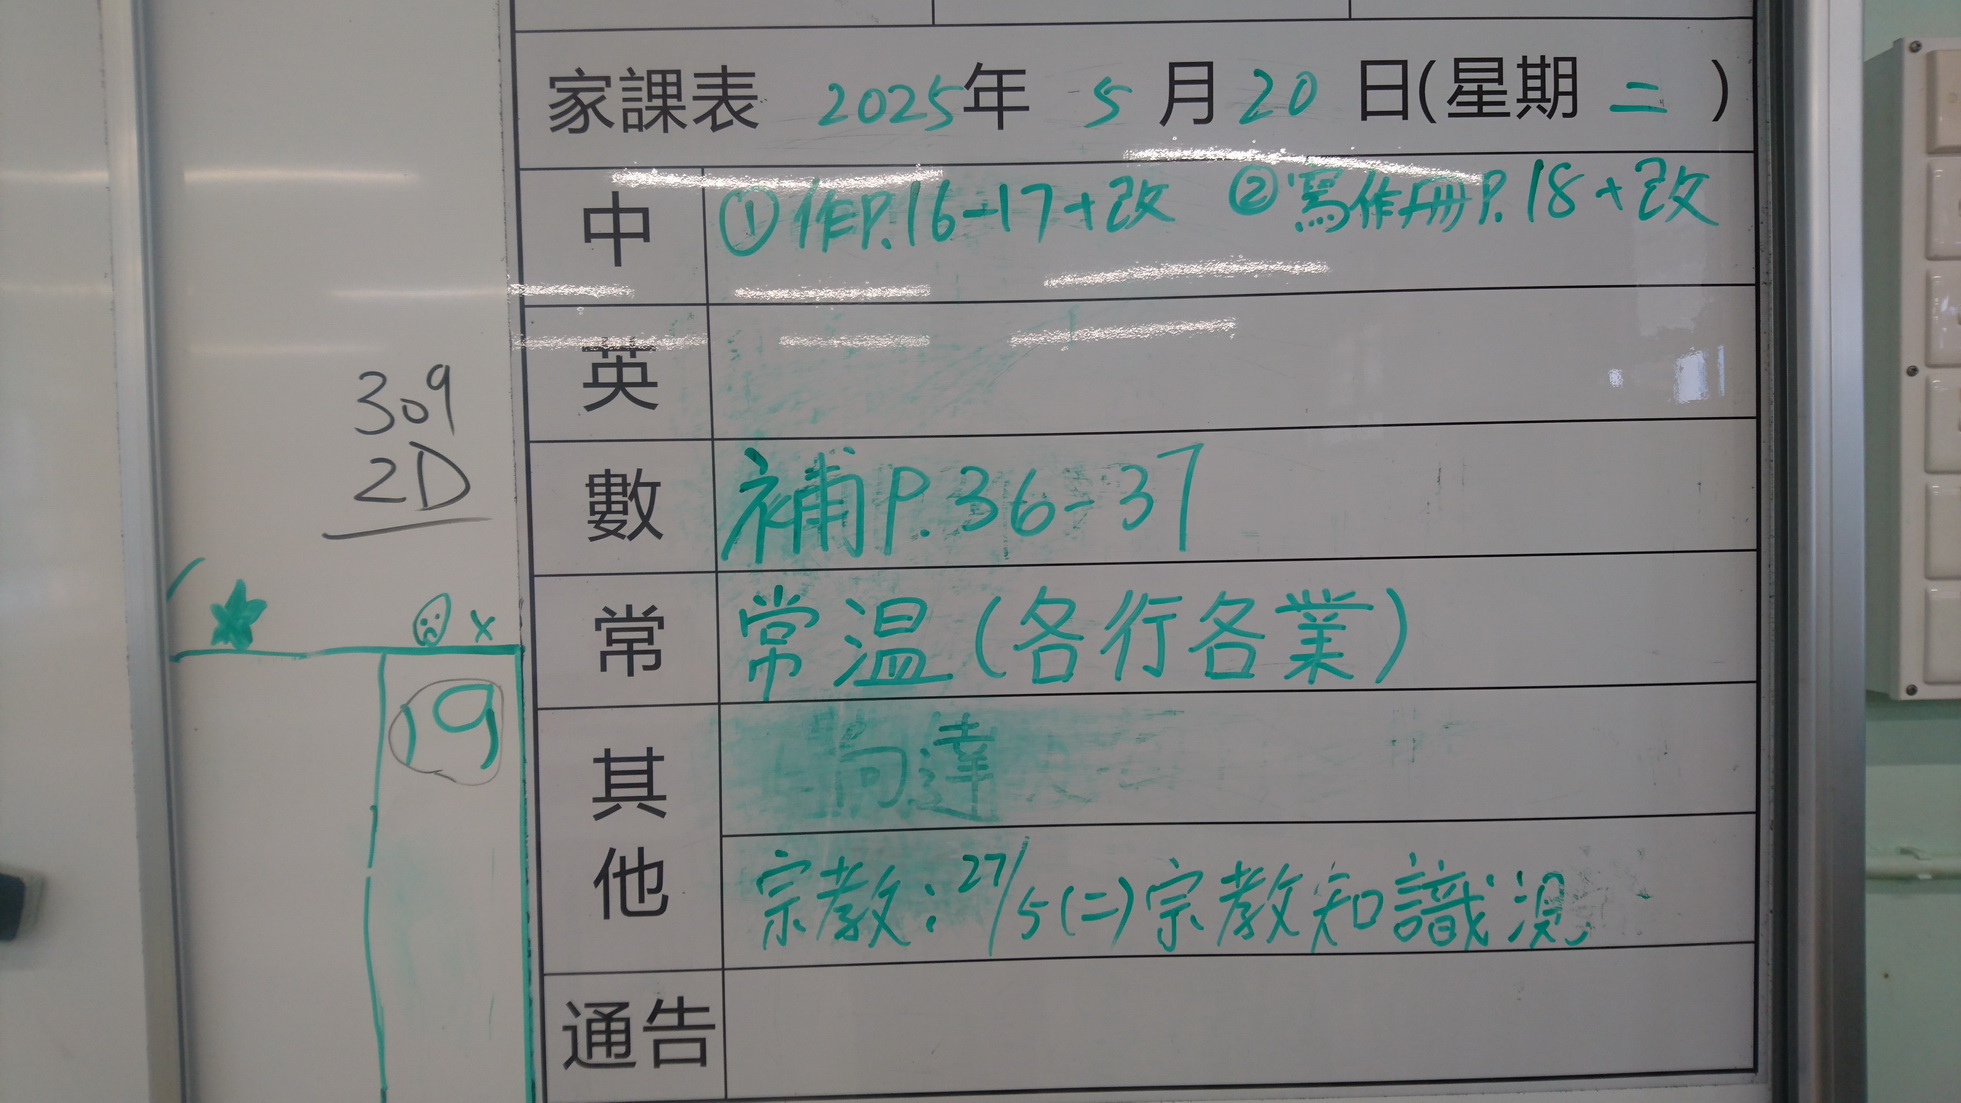 家課表 2025年 5月20日(星期二)
中 ①作P.16-17+改 ②寫作冊P.18+改
英
數 補P.36-37
常 常温(各行各業)
其他
向達
宗教:27/5(二)宗教知識測
通告
309
2D
x
19